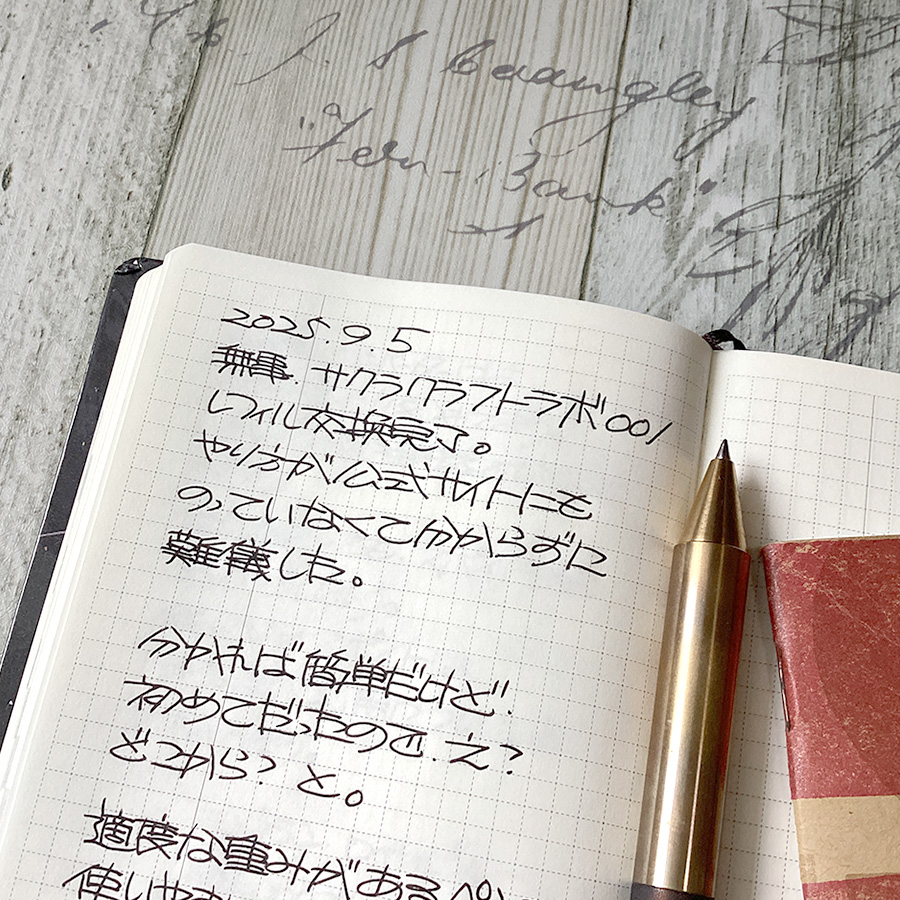 "Fern-Bank"
2025.9.5
無事、サクラクラフトラボ001
レフィル交換完了。
やり方が公式サイトにも
のっていなくて分からずに
難儀した。
分かれば簡単だけど、
初めてだったので、え?
どこから? と。
適度な重みがあるペン
使いやす